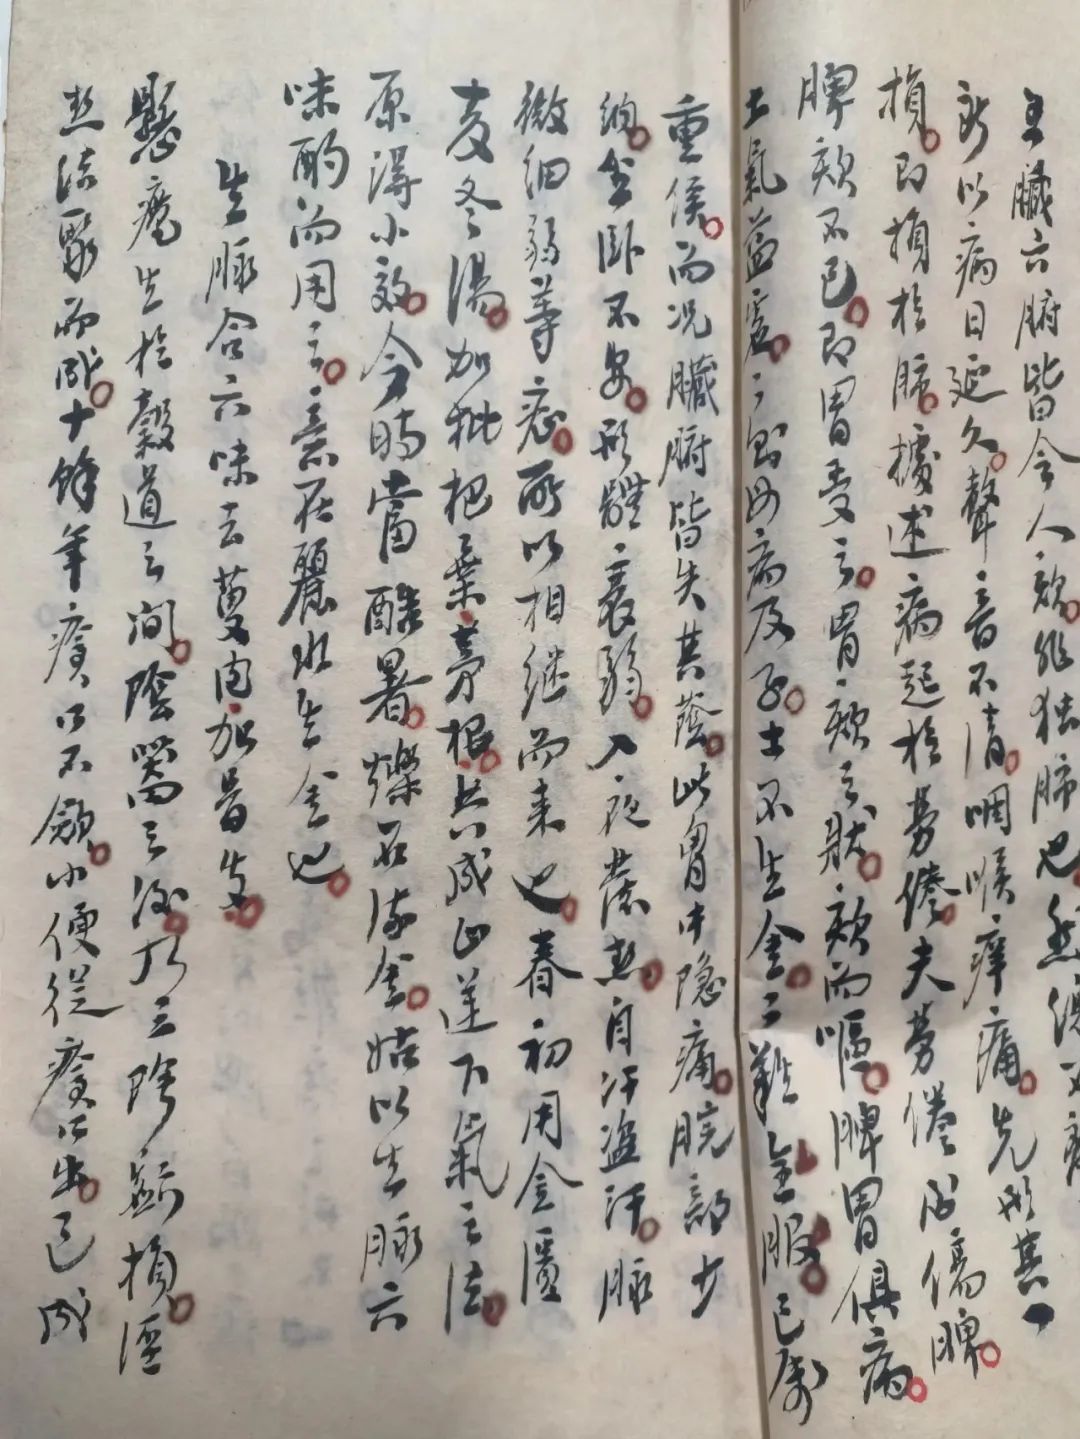 五臟六腑皆令人欬。非独肺也。然須
以病日延久。聲音不清。咽喉痒痛。先形其一
損。即損於肺。據述病起於勞倦。夫勞倦必傷脾。
脾欬不已。即胃受之。胃欬之狀。欬而嘔。脾胃俱病。
土氣益虚。虚則母病及子。土不生金。金服已屬
重候。而况臟腑皆失其蔭。此胃中隐痛。脘部少
納。坐卧不安。形體衰弱。入夜蒸热。自汗盗汗。脉
微细弱等症。所以相继而来也。春初用金匱
麦冬湯。加枇杷葉。茅根。共成止逆下氣之法。
原得小效。今時當酷暑。爍石流金。姑以生脉六
味酌而用之。意在麗水生金也。
生脉合六味去萸肉。加昔生。
懸癰生於榖道之间。陰器之後。乃三陰虧損。溼
热结聚而成。十餘年瘡口不歛。小便從瘡口出。已成